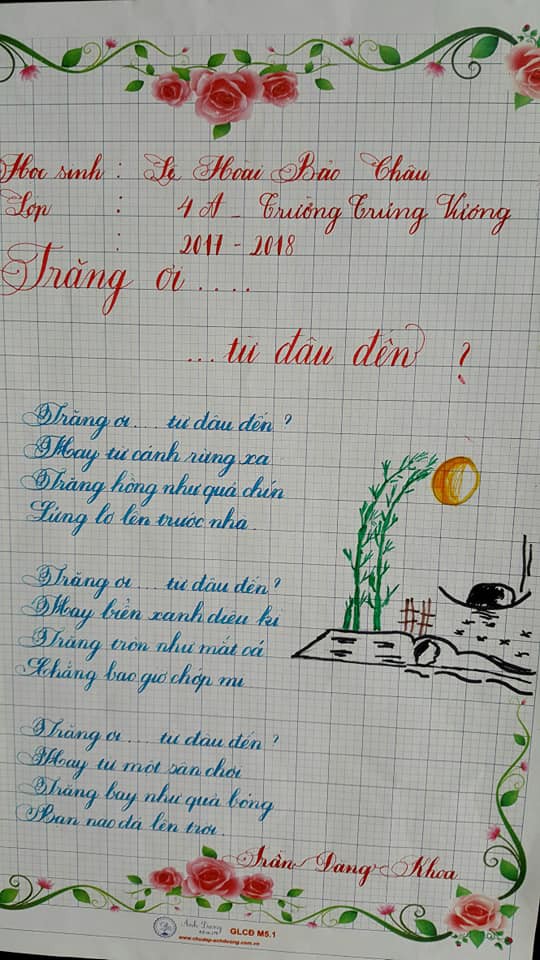 Học sinh : Lê Hoài Bảo Châu
Lớp : 4A - Trưởng Trưng Vương
: 2017 - 2018
Trăng ơi ....
... từ đâu đến ?
Trăng ơi .... từ đâu đến ?
Hay từ cánh rừng xa
Trăng hồng như quả chín
Lửng lơ lên trước nhà.
Trăng ơi .... từ đâu đến ?
Hay biển xanh diệu kì
Trăng tròn như mắt cá
Chẳng bao giờ chớp mi
Trăng ơi .... từ đâu đến ?
Hay từ một sân chơi
Trăng bay như quả bóng
Bạn nào đá lên trời.
Trần Đăng Khoa
Ánh Dương
GLCĐ M5.1
www.chudep-anhduong.com.vn